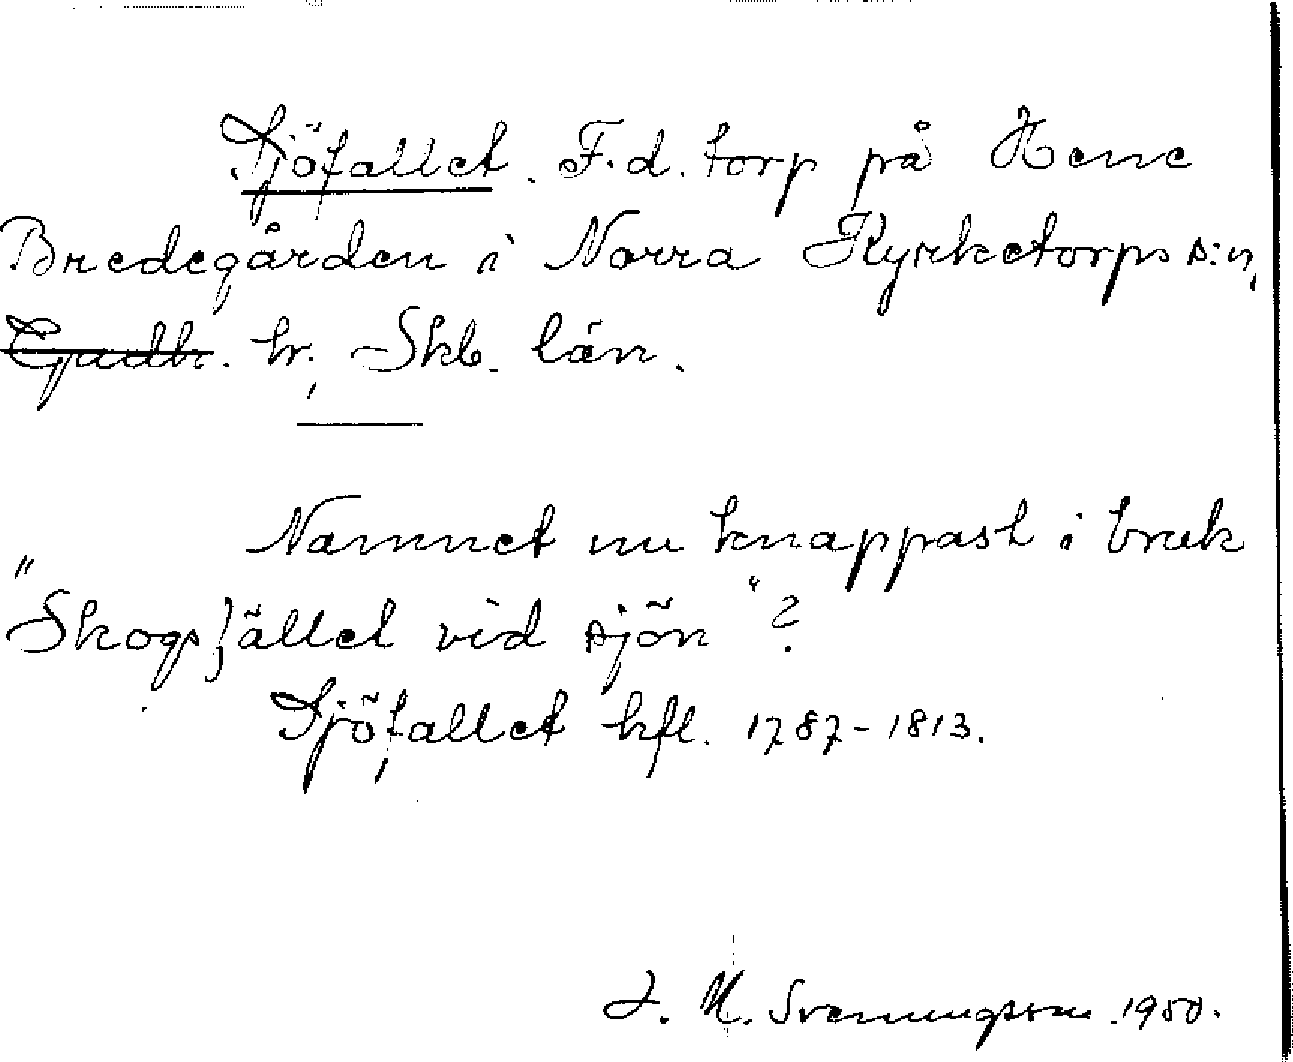 Sjöfallet. F.d. torp på Hene
Bredegården i Norra Kyrketorps s:n,
Gudh. hr, Skb. län.
Namnet nu knappast i bruk
"Skogsfället vid sjön"?
Sjöfallet hfl. 1787-1813.
J. M. Svenungsson. 1950.